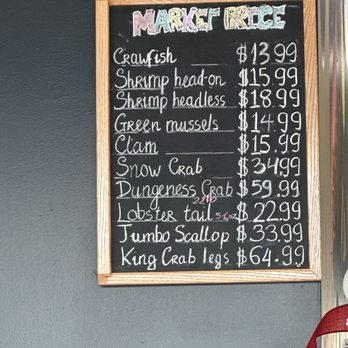 MARKET PRICE
Crawfish $13.99
Shrimp head-on $15.99
Shrimp headless $18.99
Green mussels $14.99
Clam $15.99
Snow Crab $34.99
Dungeness Crab $59.99
Lobster tail 5-6oz $22.99
Jumbo Scallop $33.99
King Crab legs $64.99